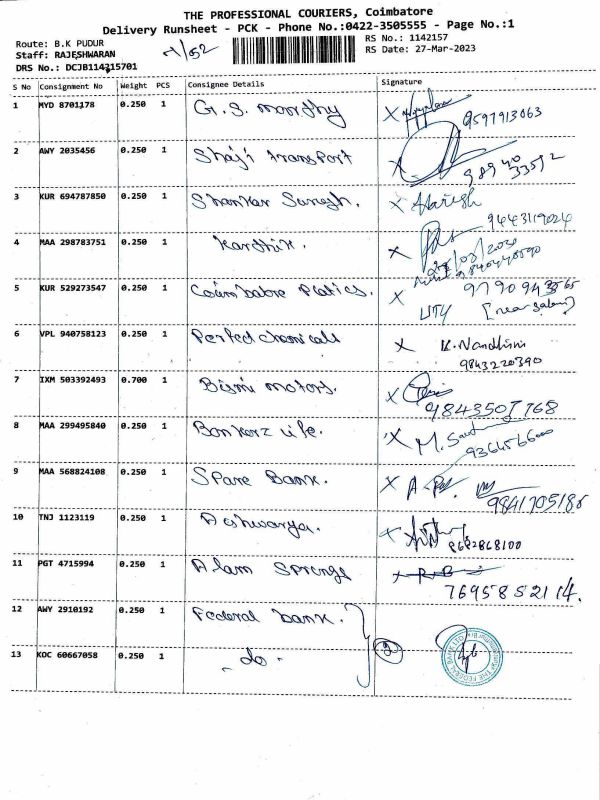 THE PROFESSIONAL COURIERS, Coimbatore
Delivery Runsheet - PCK - Phone No.:0422-3505555 - Page No.:1
Route: B.K PUDUR
RS No.: 1142157
Staff: RAJESHWARAN
RS Date: 27-Mar-2023
DRS No.: DCJB114215701
S No Consignment No Weight PCS Consignee Details Signature
1 MYD 8701178 0.250 1 G. S. moorthy 9597913063
2 AWY 2035456 0.250 1 Shaji transport 98940 33592
3 KUR 694787850 0.250 1 Shankar Suresh. Haresh 9443119024
4 MAA 298783751 0.250 1 Karthik.
5 KUR 529273547 0.250 1
6 VPL 940758123 0.250 1 Perfect chemicals K. Nandhini
9843220390
7 IXM 503392493 0.700 1 Bismi motors. 9843507768
8 MAA 299495840 0.250 1
9 MAA 568824108 0.250 1 Spare Bank. 9841705186
10 TNJ 1123119 0.250 1 Aishwarya. 8682868100
11 PGT 4715994 0.250 1 Alam Springs
7695852114.
12 AWY 2910192 0.250 1 Federal bank.
2
13 KOC 60667058 0.250 1 - do -